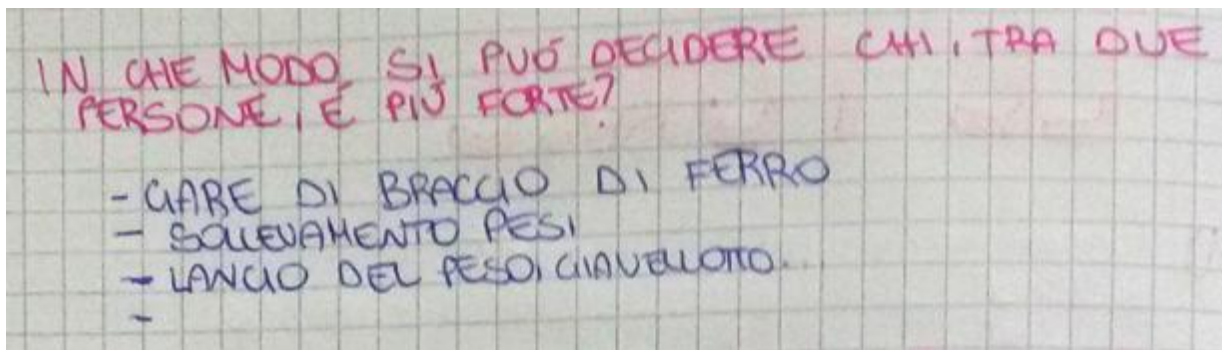 IN CHE MODO SI PUÓ DECIDERE CHI, TRA DUE
PERSONE, É PIÚ FORTE?
- GARE DI BRACCIO DI FERRO
- SOLLEVAMENTO PESI
- LANCIO DEL PESO, GIAVELLOTTO...
-